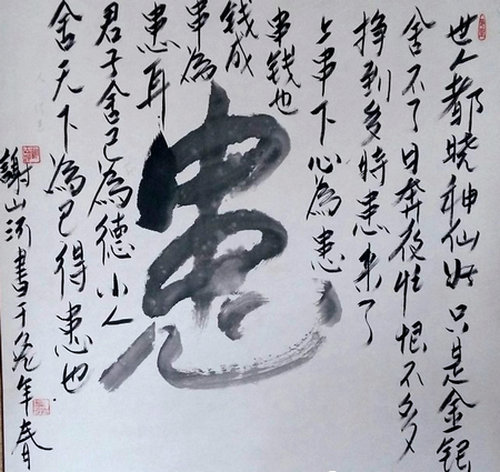 世人都晓神仙好只是金银
舍不了日奔夜忙恨不多
挣到多时患来了
上串下心為患
串钱也
钱成
串為
患耳
患
君子舍己為德小人
舍天下為己得患也
謝山河書于年春